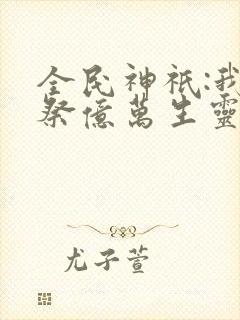 全民神祇:我
祭億萬生靈
尤子萱